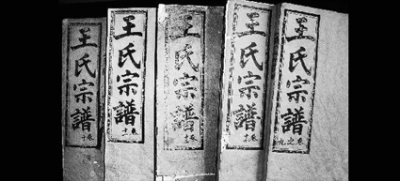 王氏宗譜
王氏宗譜
王氏宗譜
王氏宗譜
王氏宗譜 卷之九